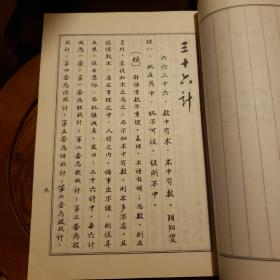 三十六计
六六三十六，数中有术，术中有数。阴阳燮
理，机在其中。机不可设，设则不中。
〔按〕解语重数不重理。盖理，术语自明；而数，则在
言外。若徒知术之为术，而不知术中有数，则术多不应。且
诡谋权术，原在事理之中，人情之内。倘事出不经，则诡异
立见，诧世惑俗，而机谋泄矣。或曰：三十六计中，每六计
成为一套。第一套为胜战计；第二套为敌战计；第三套为攻
战计；第四套为混战计；第五套为并战计；第六套为败战计。
九